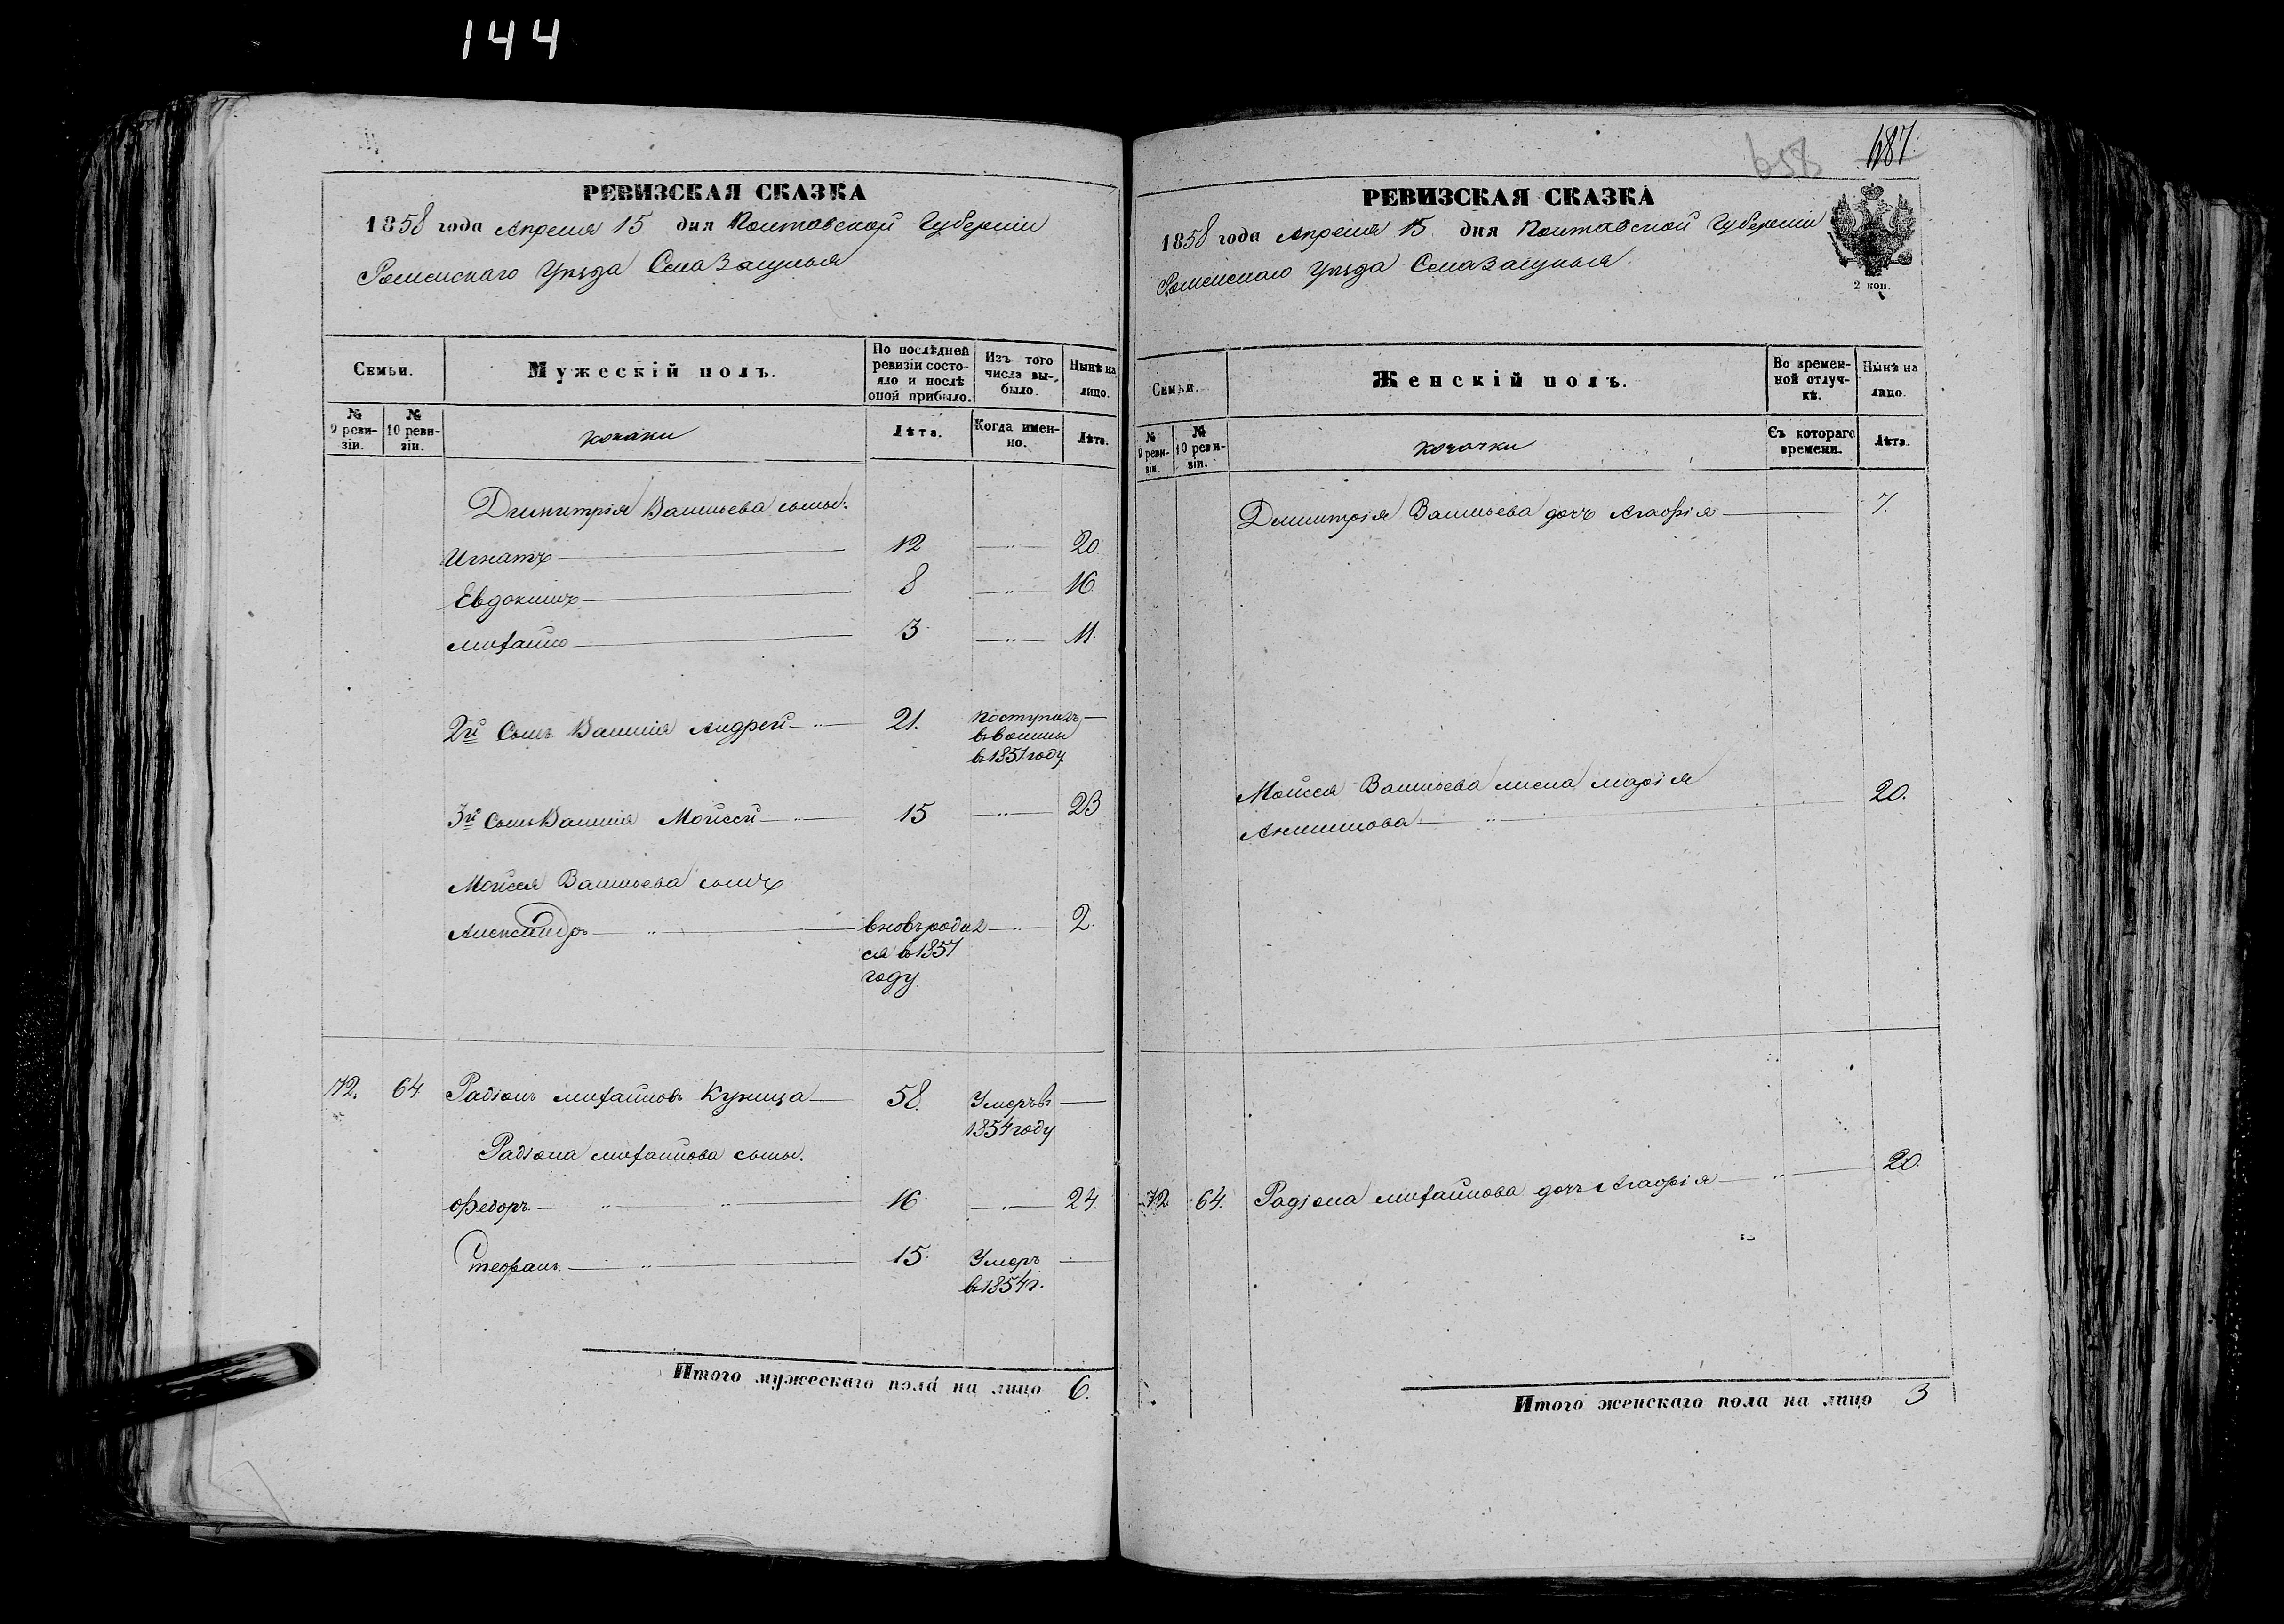 144
РЕВИЗСКАЯ СКАЗКА
1858 года Апреля 15 дня Полтавской Губерніи
Роменскаго Уѣзда Села Засулья
Семьи.
Мужескій полъ.
По послѣдней ревизіи состояло и послѣ оной прибыло.
Изъ того числа выбыло.
Нынѣ на лицо.
№ 9 ревизіи.
№ 10 ревизіи.
козаки
Лѣта.
Когда именно.
Лѣта.
Димитрія Васильева сыны:
Игнатъ 12 20
Евдокимъ 8 16.
Михайло 3 11.
2й Сынъ Василія Андрей 21. поступилъ
въ воины
въ 1851 году
3й Сынъ Василія Мойсей 15 23
Мойсея Васильева сынъ
Александръ вновь родил 2.
ся въ 1857
году
72. 64 Радіонъ Михайловъ Куница 58. Умеръ въ
1854 году
Радіона Михайлова сыны.
Федоръ 16 24.
Стефанъ 15. Умеръ
въ 1854 г.
Итого мужескаго пола на лицо 6.
658 687
РЕВИЗСКАЯ СКАЗКА
1858 года Апреля 15 дня Полтавской Губерніи
Роменскаго Уѣзда Села Засулья.
2 коп.
Семьи.
Женскій полъ.
Во временной отлучкѣ.
Нынѣ на лицо.
№ 9 ревизіи.
№ 10 ревизіи.
козачки
Съ котораго времени.
Лѣта.
Димитрія Васильева дочь Агафія 7.
Мойсея Васильева жена Марія
Анишимова 20.
72 64. Радіона Михайлова дочь Агафія 20.
Итого женскаго пола на лицо 3